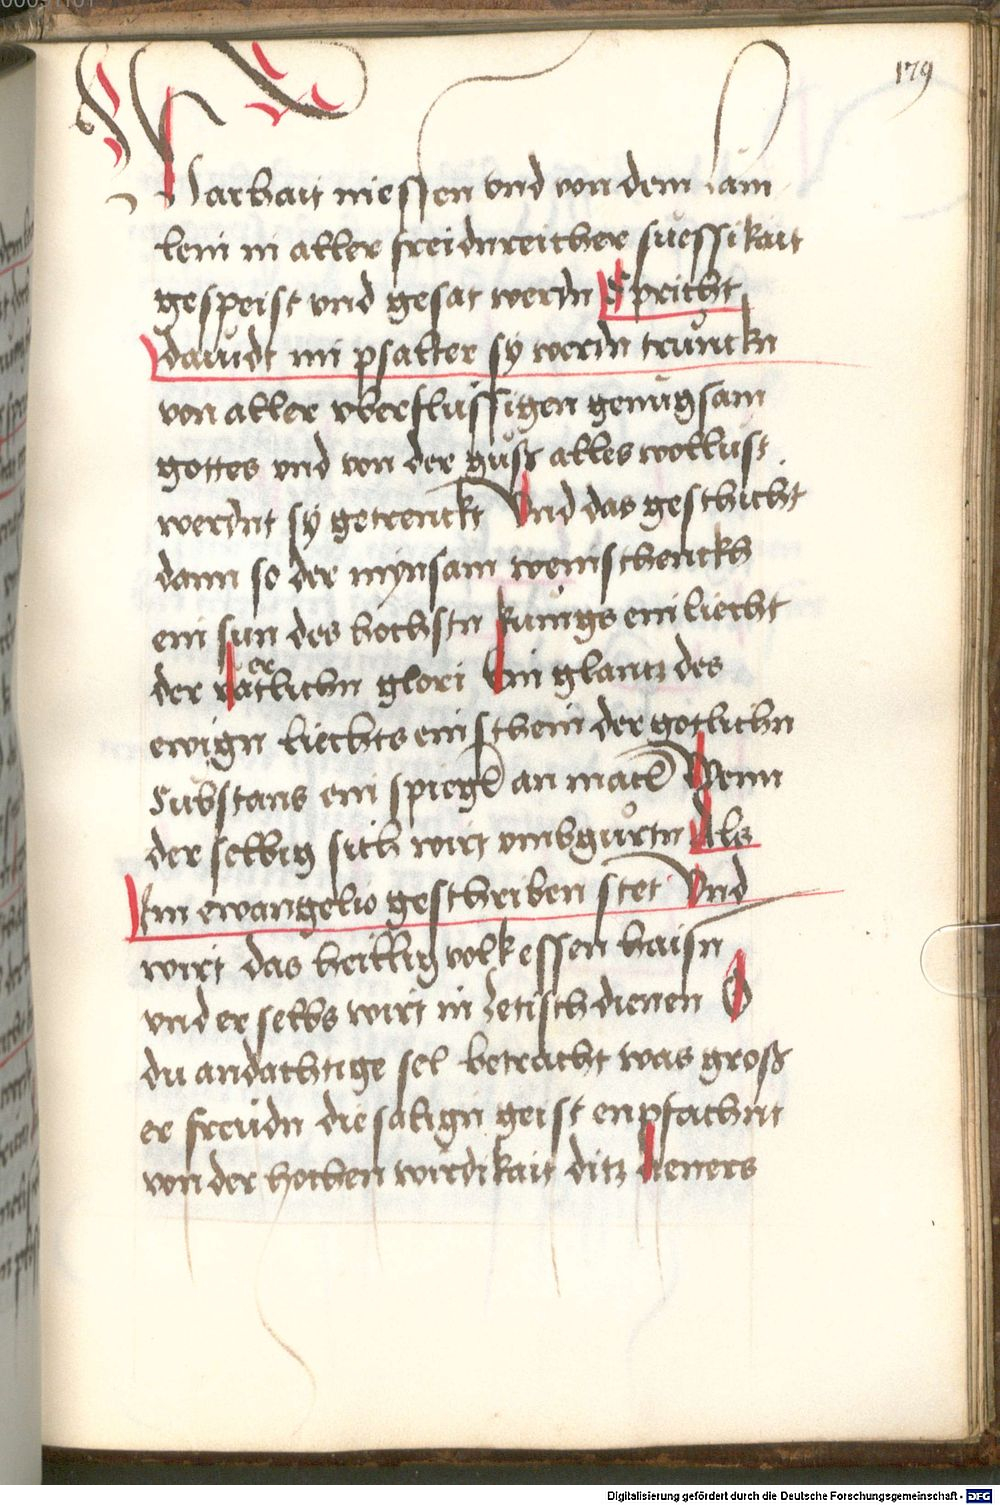 179
Narbait niessen vnd von dem lam
lein in aller freidnreicher suessikait
gespeist vnd gesat werdn Spricht
dauidt im psalter sy werdn trunckn
von aller vberflussigen genugsam
gottes vnd von der gust alles wollust
werdnt sy getrenckt Vnd das geschicht
dann so der mynsam weinschenckh
ein sun des hochstn kunigs ein liecht
der vaterlichn glori Ein glantz des
ewign liechts ein schein der gotlichn
Substans ein spiegel an macel Wenn
der selbig sich wirt vmbgurtn Als
Im ewangelio geschriben stet Vnd
wirt das heillig volk essen haisn
vnd er selbs wirt in zetisch dienen O
du andachtige sel betracht was gross
er freudn die salign geist enpfachnt
von der hochen wirdikait ditz dieners
Digitalisierung gefördert durch die Deutsche Forschungsgemeinschaft - DFG